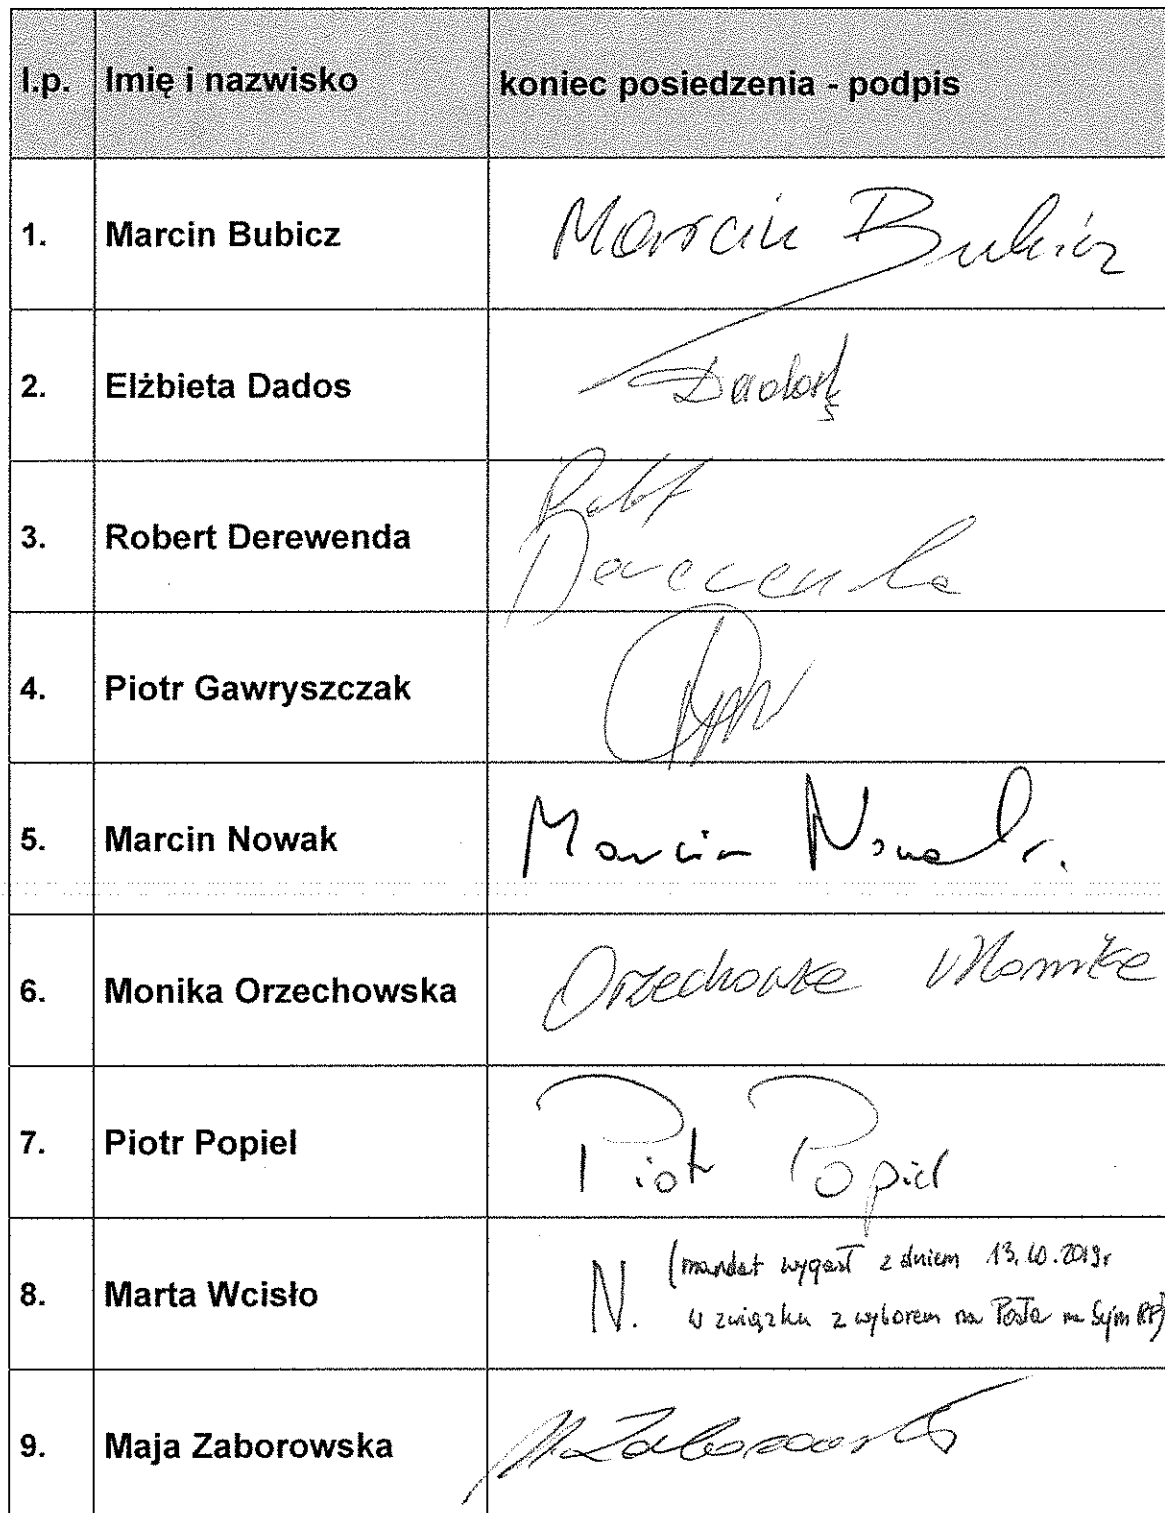 l.p. Imię i nazwisko koniec posiedzenia - podpis
1. Marcin Bubicz Marcin Bubicz
2. Elżbieta Dados Dados
3. Robert Derewenda Robert
Derewenda
4. Piotr Gawryszczak
5. Marcin Nowak Marcin Nowak.
6. Monika Orzechowska Orzechowska Monika
7. Piotr Popiel Piotr Popiel
8. Marta Wcisło N. (mandat wygasł z dniem 13.10.2019r
w związku z wyborem na Posła na Sejm RP)
9. Maja Zaborowska M. Zaborowska